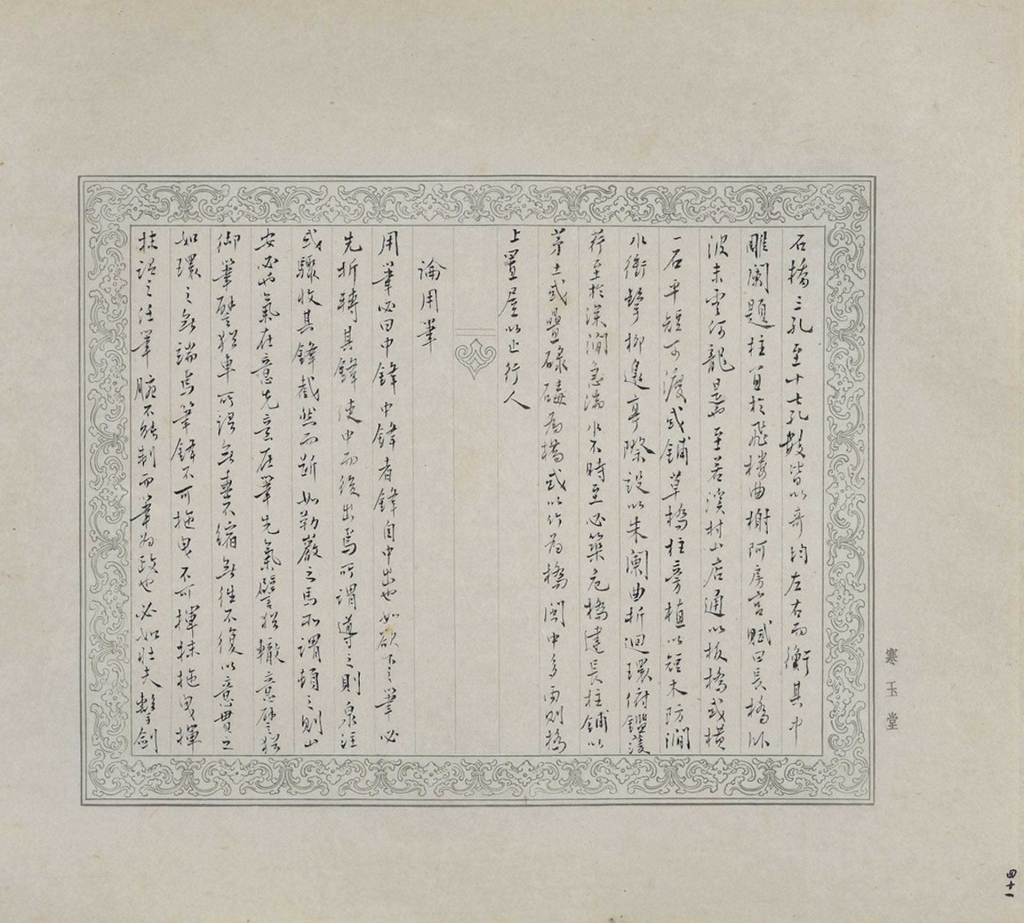 石橋三孔至十七孔數皆以奇均左右而衡其中
雕闌題柱亘於飛樓曲榭阿房宮賦曰長橋臥
波未雲何龍是也至若溪村山店通以板橋或橫
一石平短可渡或鋪草橋柱旁植以短木防澗
水衝擊柳邊亭際設以朱闌曲折迴環俯鑑菱
荇至於深澗急湍水不時至必築危橋建長柱鋪以
茅土或疊碌磚為橋或以竹為橋閩中多雨則橋
上置屋以止行人
論用筆
用筆必曰中鋒中鋒者鋒自中出也如欲下筆必
先折轉其鋒使中而後出焉所謂導之則泉注
或驟收其鋒截然而斷如勒巖之馬所謂頓之則山
安必也氣在意先意在筆先氣譬猶轍意譬猶
御筆譬猶車所謂無垂不縮無往不復以意貫之
如環之無端焉筆鋒不可拖曳不可揮抹拖曳揮
抹謂之法筆腕不能制而筆為役也必如壯夫擊劍
寒玉堂
四十一